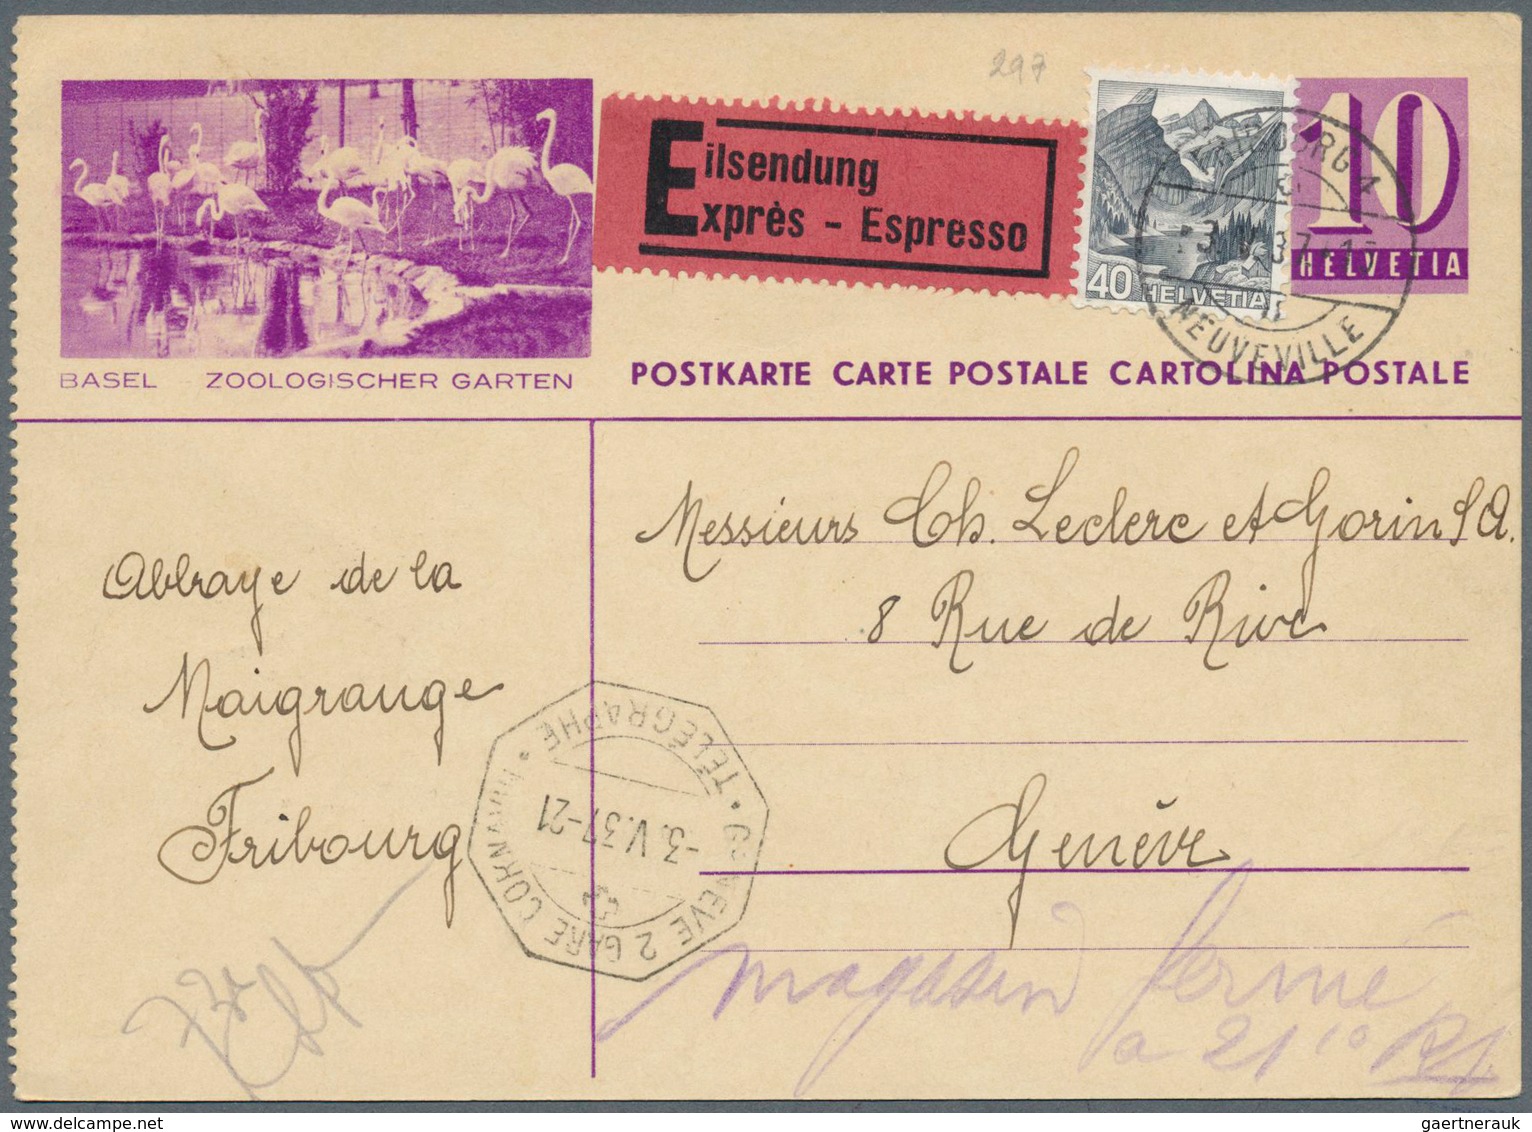 297
10
HELVETIA
Eilsendung
Exprès - Espresso
40 HELVETIA
FRIBOURG 1
NEUVEVILLE
BASEL ZOOLOGISCHER GARTEN
POSTKARTE CARTE POSTALE CARTOLINA POSTALE
Messieurs Ch. Leclerc et Gorin S.A.
8 Rue de Rive
Genève
Abbaye de la
Maigrauge
Fribourg
GENÈVE 2 GARE CORNAVIN • TÉLÉGRAPHE •
-3.V.37-21
magasin fermé
a 21 10
gaertnerauk@delcampe.net